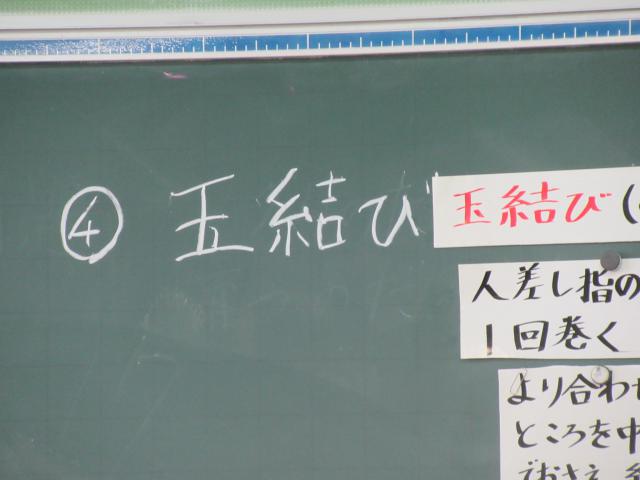 ④ 玉結び
玉結び(
人差し指の
1回巻く
より合わせ
ところを中
でおさえ